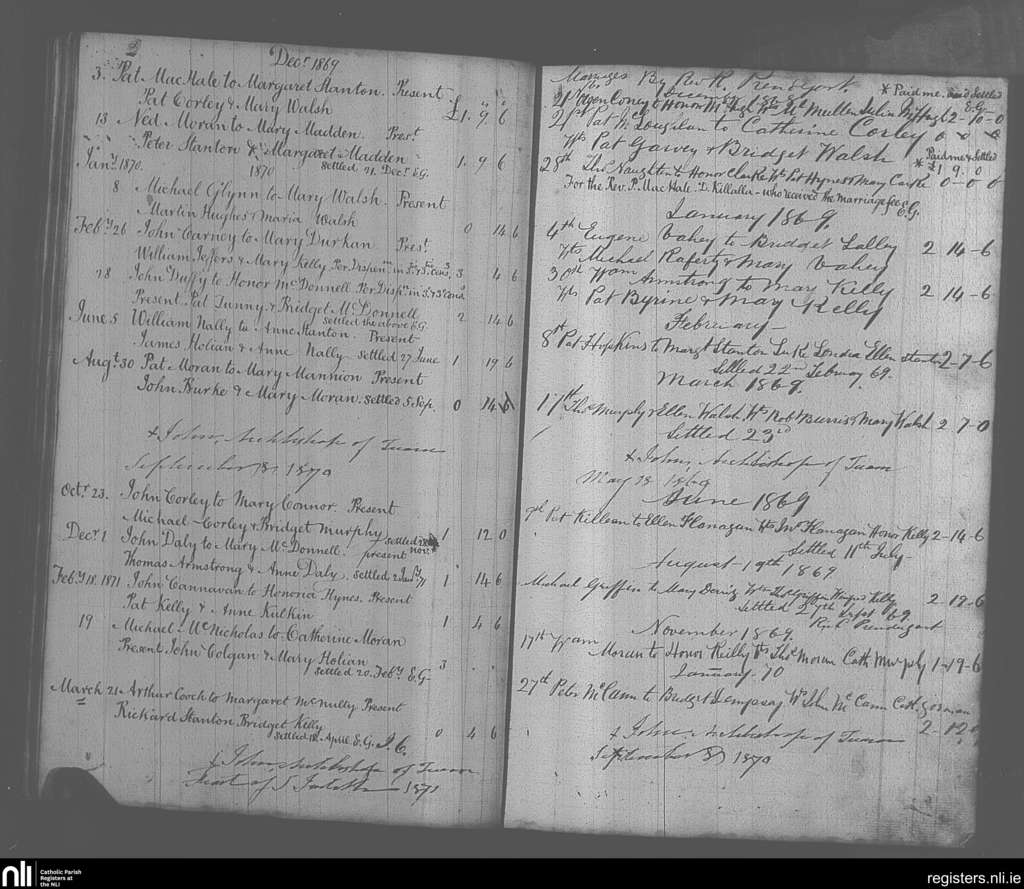 2
Decr 1869
3. Pat MacHale to Margaret Stanton. Present
Pat Corley & Mary Walsh £1. 9. 6
13 Ned. Moran to Mary Madden. Prest
Peter Stanton & Margaret Madden 1. 9 6
settled 21. Decr E.G.
Jany 1870. 1870
8 Michael Glynn to Mary Walsh. Present
Martin Hughes & Maria Walsh 0 14 6
Feby 26 John Carney to Mary Durkan Prest
William Jeffers & Mary Kelly. Per Dispenn in 3. & 3. Cons. 3 4 6
28 John Duffy to Honor McDonnell Per Dispn in
Present Pat Tunny & Bridget McDonnell 2 14 6
settled the above E.G.
June 5 William Nally to Anne Stanton. Present
James Holian & Anne Nally settled 27 June 1 19 6
Augt 30 Pat Moran to Mary Mannion Present
John Burke & Mary Moran. settled 5 Sep. 0 14 6
+ John, Archbishop of Tuam
September 8, 1870
Octr 23. John Corley to Mary Connor. Present
Michael Corley & Bridget Murphy settled Novr 1 12 0
Decr 1 John Daly to Mary McDonnell. present
Thomas Armstrong & Anne Daly. settled 2 Jany 71 1 14 6
Feby 18. 1871 John Cannavan to Honoria Hynes. Present
Pat Kelly & Anne Kulkin 1 4 6
19 Michael McNicholas to Catherine Moran
Present John Colgan & Mary Holian 3 . .
settled 20. Feby E.G.
March 21 Arthur Cooch to Margaret McNulty Present
Rickard Stanton Bridget Kelly 0 4 6
settled 12. April E.G.
+ John, Archbishop of Tuam
1871
Marriages By Rev R. Prendgst.
December * Paid me. and Settled E.G.
to Honor McHugh Mullen Julia McHugh 2-10-0
21st Pat McLoughlan to Catherine Corley 0 0 0
Wts Pat Garvey & Bridget Walsh
* Paid me & Settled £1 9. 0
28th Thos Naughten to Honor Clarke Wts Pat Hynes & Mary 0-0 0
For the Rev. P. MacHale. D. Killalla - who received the marriage fees E.G.
January 1869.
4th Eugene Vahey to Bridget Lally 2 14-6
Wts Michael Raferty & Mary Vahey
30th Wam Armstrong to Mary Kelly 2 14-6
Wts Pat Byrine & Mary Kelly
February
8th Pat Hopkins to Margt Stanton Ellen Stanton 2-7-6
Settled 22nd Febuary 69.
March 1869.
17th Thos Murphy & Ellen Walsh. Wts Robt Burris & Mary Walsh 2 7-0
Settled 23rd
+ John, Archbishop of Tuam
May 18 1869
June 1869
9th Pat Killean to Ellen Flanagan Wts Jno Flanagan Honor Kelly 2-14-6
Settled 11th July
August 19th 1869
Michael Griffin to Mary Griffin Kelly 2-12-6
Settled 27th Sept 69.
R. Prendergast
November 1869.
17th Wam Moran to Honor Reilly Wts Thos Moran Cath Murphy 1-19-6
January. 70
27th Peter McCann to Budget Dempsay Wts John McCann Cath Gorman
2-12
+ John, Archbishop of Tuam
September 8, 1870
nli Catholic Parish
Registers at
the NLI
registers.nli.ie